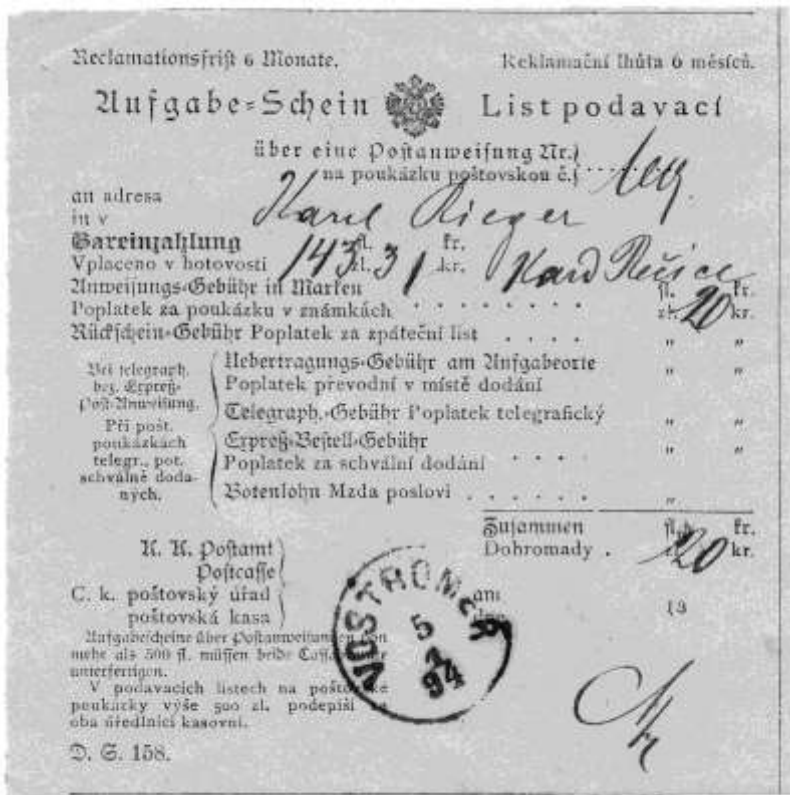 Reclamationsfrist 6 Monate. Reklamační lhůta 6 měsíců.
Aufgabe-Schein List podavací
über eine Postanweisung Nr.
na poukázku poštovskou č.
an adresa Karel Rieger
in v
Bareinzahlung fl. kr.
Vplaceno v hotovosti 143 zl. 31 kr. Karel
Anweisungs-Gebühr in Marken fl. kr.
Poplatek za poukázku v známkách . . . . . . . . zl. 20 kr.
Rückschein-Gebühr Poplatek za zpáteční list . . . . . " "
Bei telegraph. bez. Expreß-Post-Anweisung.
Při pošt. poukázkách telegr., pot. schválně dodaných.
Uebertragungs-Gebühr am Aufgabeorte " "
Poplatek převodní v místě dodání
Telegraph.-Gebühr Poplatek telegrafický " "
Expreß-Bestell-Gebühr " "
Poplatek za schvální dodání . . . .
Botenlohn Mzda poslovi . . . . . . "
Zusammen fl. kr.
Dohromady . 20 kr.
K. K. Postamt
Postcasse
C. k. poštovský úřad am
poštovská kasa dne 18
VOSTROMĚR
5
94
Aufgabescheine über Postanweisungen von
mehr als 500 fl. müssen beide
unterfertigen.
V podavacích listech na poštovské
poukázky výše 500 zl. podepíší se
oba úředlníci kasovní.
D. S. 158.